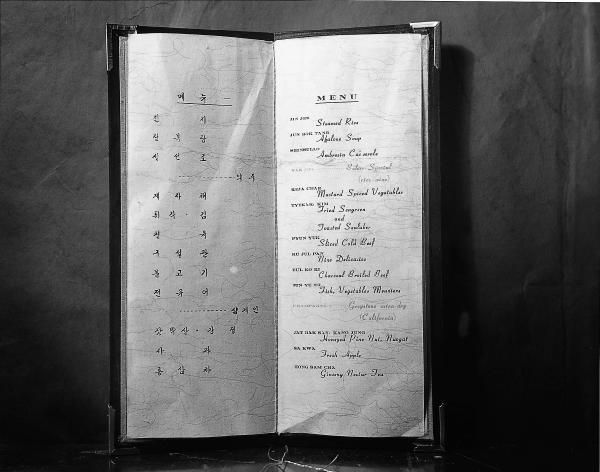 메 뉴
진 지
전 복 탕
신 선 로
약 주
겨 자 채
튀 각 · 김
편 육
구 절 판
불 고 기
전 유 어
샴 페 인
잣 박 산 · 강 정
사 과
홍 삼 차
MENU
JIN JEE
Steamed Rice
JUN BOK TANG
Abalone Soup
SHINSULLO
Ambrosia Casserole
YAK JOO
(rice wine)
KEJA CHAE
Mustard Spiced Vegetables
TYIKAK, KIM
Fried Seagreen
and
Toasted Sealaber
PYUN YUK
Sliced Cold Beef
KU JUL PAN
Nine Delicacies
BUL KO KI
Charcoal Broiled Beef
JUN YU UH
Fish, Vegetables Meuniere
CHAMPAGNE
(California)
JAT BAK SAN, KANG JUNG
Honeyed Pine Nut, Nougat
SA KWA
Fresh Apple
HONG SAM CHA
Ginseng Nectar Tea